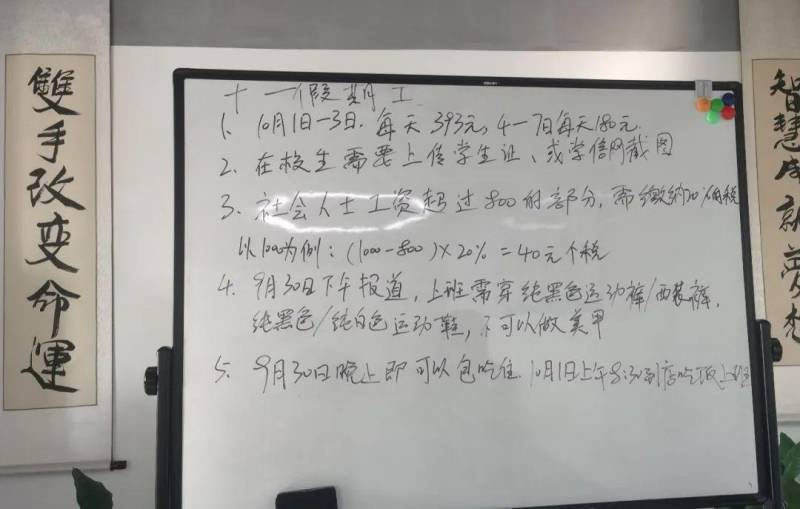 雙手改变命運
十一假期工
1. 10月1日-3日.每天393元,4-7日每天180元.
2. 在校生需要上传学生证、或学信网截图
3. 社会人士工资超过800的部分,需缴纳20%个税
以1000为例:(1000-800)×20%=40元个税
4. 9月30日下午报道,上班需穿纯黑色运动裤/西装裤,
纯黑色/纯白色运动鞋,不可以做美甲
5. 9月30日晚上即可以包吃住.10月1日上午8:30到店吃饭上班
智慧成就夢想